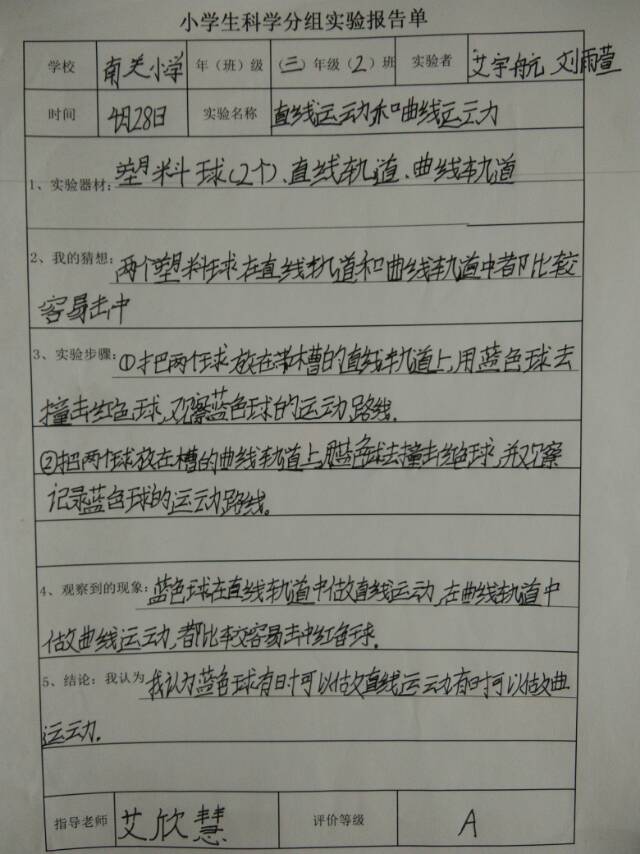 小学生科学分组实验报告单
学校 南关小学 年（班）级 （三）年级（2）班 实验者 艾宇航 刘雨萱
时间 4月28日 实验名称 直线运动和曲线运动
1、实验器材: 塑料球(2个)、直线轨道、曲线轨道
2、我的猜想: 两个塑料球在直线轨道和曲线轨道中都比较
容易击中
3、实验步骤: ①把两个球放在带槽的直线轨道上,用蓝色球去
撞击红色球,观察蓝色球的运动路线.
②把两个球放在槽的曲线轨道上,用蓝色球去撞击红色球,并观察
记录蓝色球的运动路线。
4、观察到的现象: 蓝色球在直线轨道中做直线运动,在曲线轨道中
做曲线运动,都比较容易击中红色球.
5、结论: 我认为 我认为蓝色球有时可以做直线运动有时可以做曲
运动.
指导老师 艾欣慧 评价等级 A